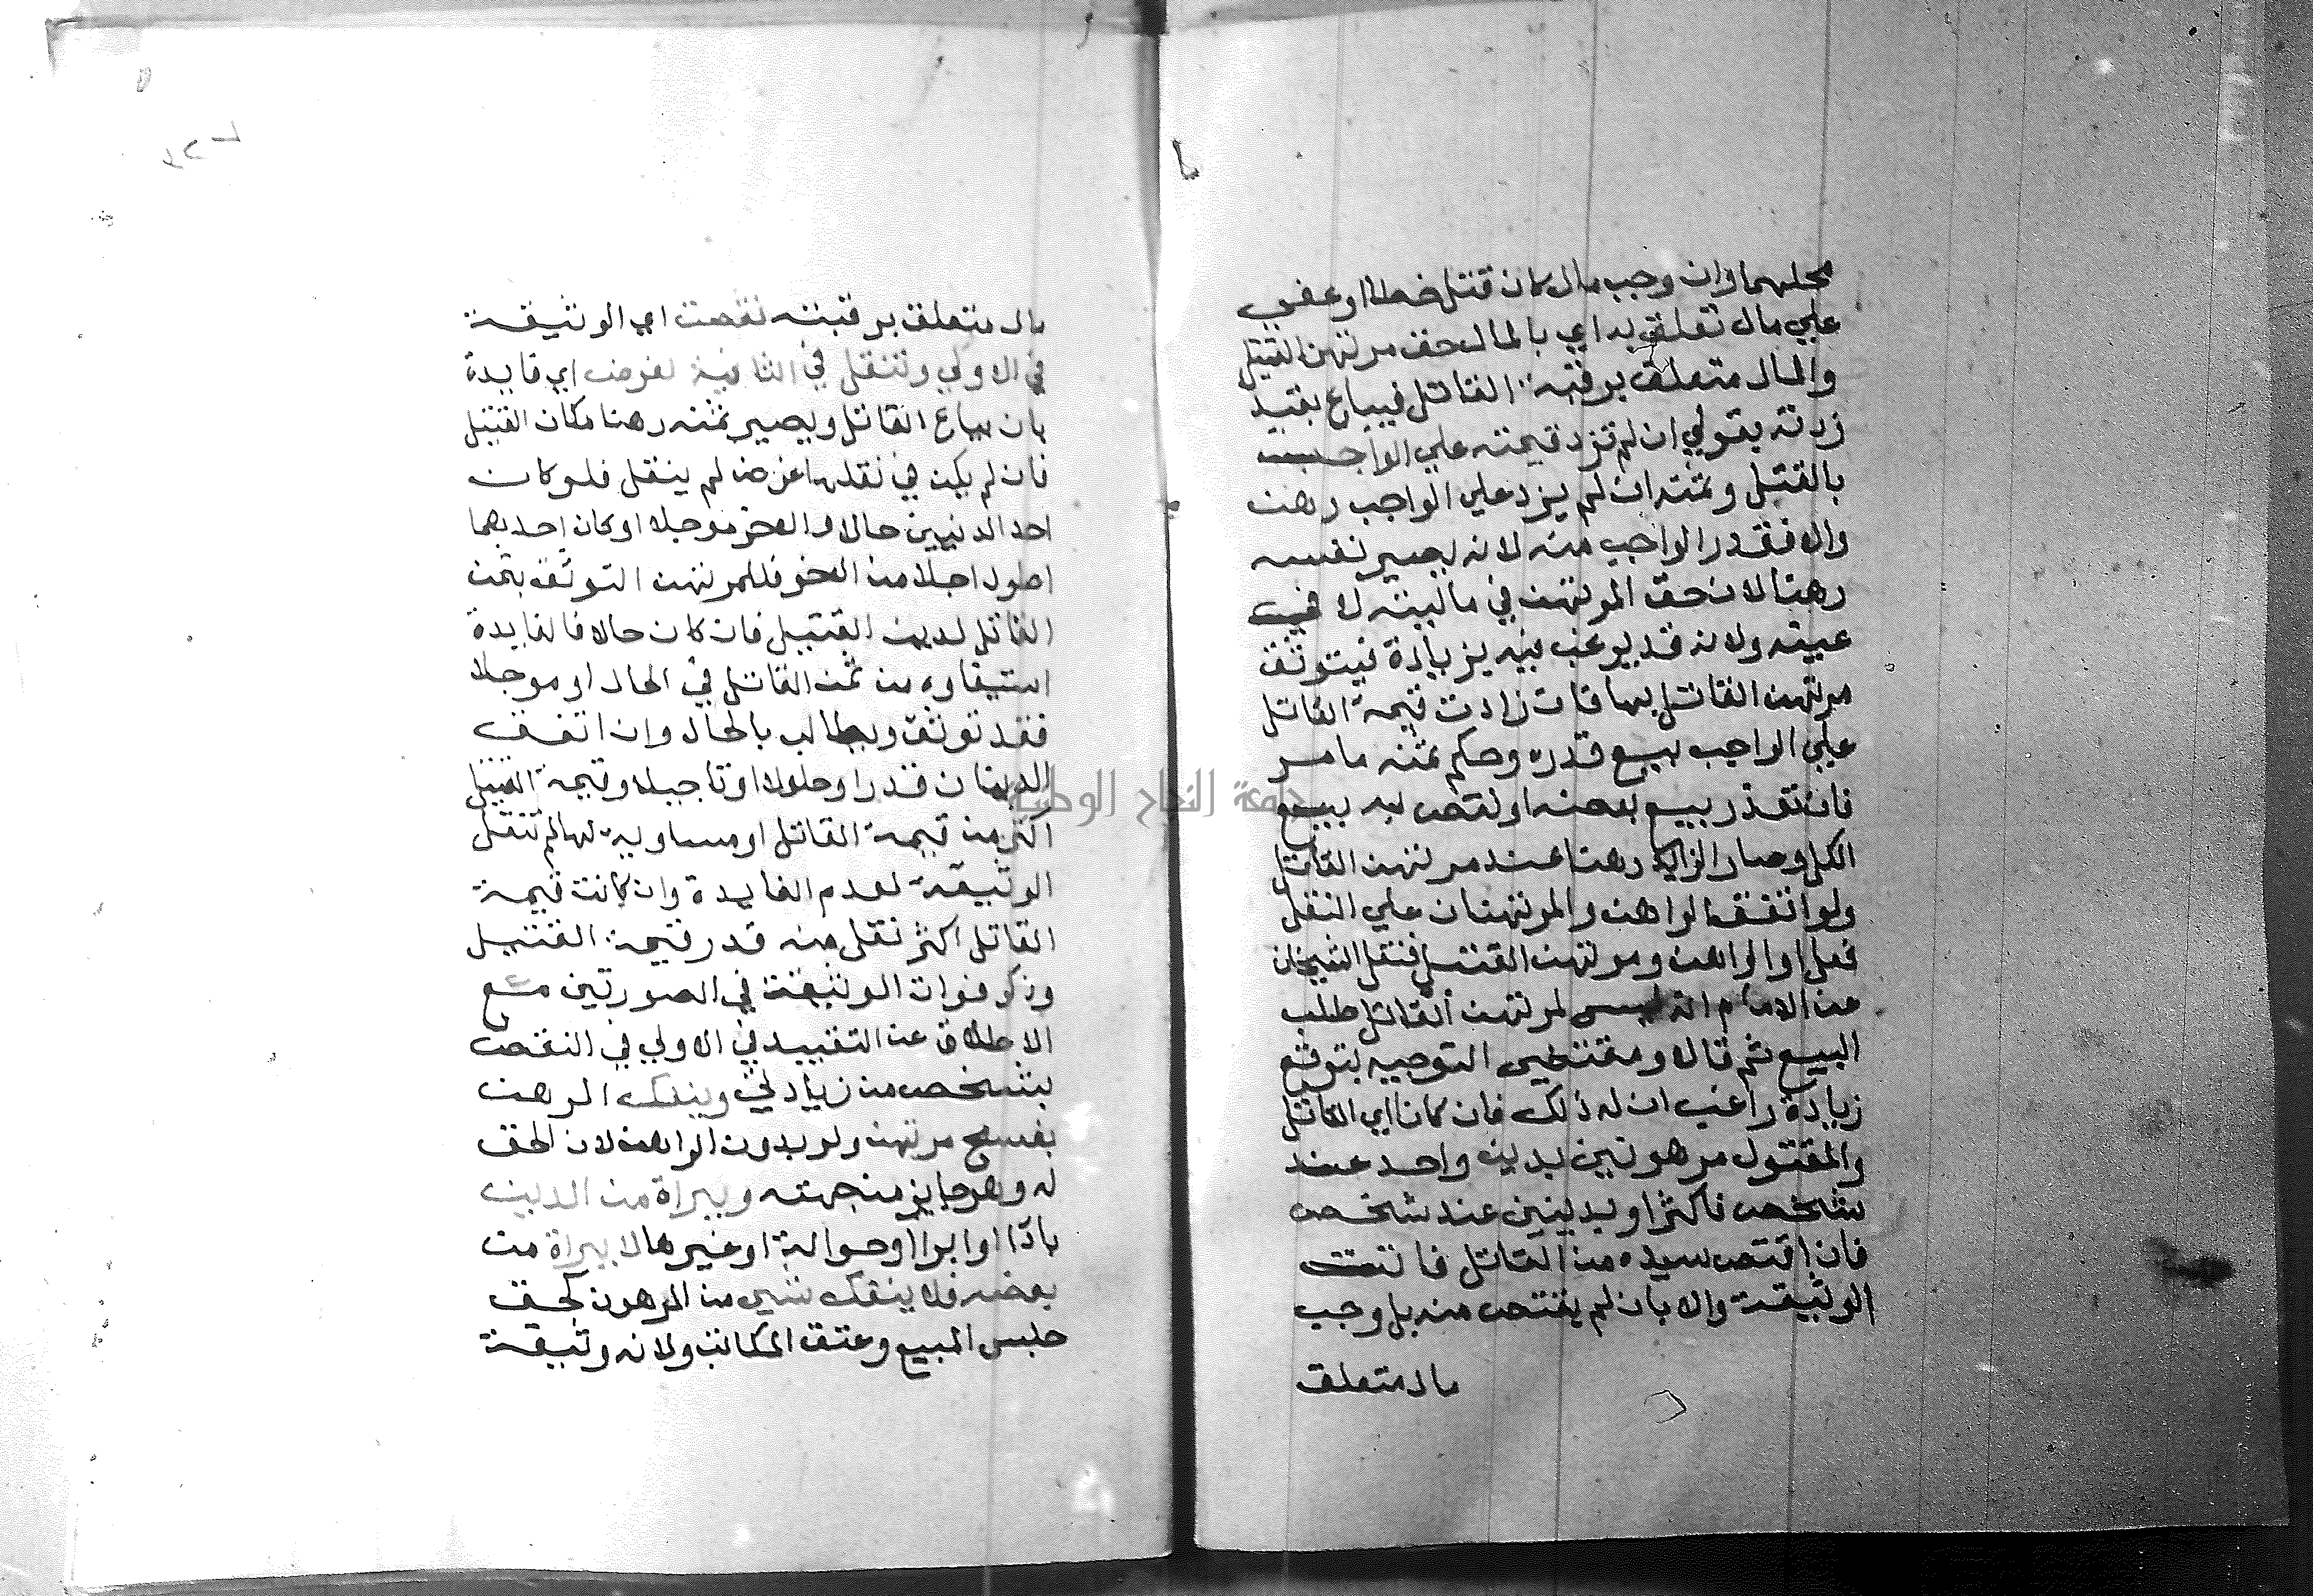 محلهما وان وجب مال كان قتل خطا او عفي
علي مال تعلق به اي بالمال حق مرتهن القتيل
والمال متعلق برقبة القاتل فيباع بقيد
زدته بقولي ان لم تزد قيمته علي الواجب
بالقتل وثمنه ان لم يزد علي الواجب رهن
والا فقدر الواجب منه لانه يصير نفسه
رهنا لان حق المرتهن في ماليته لا في
عينه ولانه قد يرغب فيه بزيادة فيتوثق
مرتهن القاتل بها فان زادت قيمة القاتل
علي الواجب بيع قدره وحكم ثمنه ما مر
فان تعذر بيع بعضه او نقص به بيع
الكل وصار الزايد رهنا عند مرتهن القاتل
ولو اتفق الراهن والمرتهنان علي النقل
فعل او الراهن ومرتهن القتيل فنقل الشيخان
عن الامام انه ليس لمرتهن القاتل طلب
البيع ثم قال ومقتضي التوجيه بتوقع
زيادة راغب ان له ذلك فان كانا اي القاتل
والمقتول مرهونين بدين واحد عند
شخص فاكثر او بدينين عند شخص
فان اقتص سيده من القاتل فاتت
الوثيقة والا بان لم يقتص منه بل وجب
مال متعلق
مال متعلق برقبته نقصت اي الوثيقة
في الاولي وتنقل في الثانية لغرض اي فايدة
بان يباع القاتل ويصير ثمنه رهنا مكان القتيل
فان لم يكن في نقلها غرض لم ينقل فلو كان
احد الدينين حالا والاخر موجلا او كان احدهما
اطول اجلا من الاخر فللمرتهن التوثق بثمن
القاتل لدين القتيل فان كان حالا فالفايدة
استيفاوه من ثمن القاتل في الحال او موجلا
فقد توثق ويطالب بالحال وان اتفق
الدينان قدرا وحلولا او تاجيلا وقيمة القتيل
اكثر من قيمة القاتل او مساوية لها لم تنقل
الوثيقة لعدم الفايدة وان كانت قيمة
القاتل اكثر نقل منه قدر قيمة القتيل
وذكر فوات الوثيقة في الصورتين مع
الاطلاق عن التقييد في الاولي في النقص
بشخص من زيادتي وينفك الرهن
بفسخ مرتهن ولو بدون الراهن لان الحق
له وهو جايز من جهته وببراة من الدين
باداء او ابرا او حوالة او غيرها لا ببراة من
بعضه فلا ينفك شي من المرهون كحق
حبس المبيع وعتق المكاتب ولانه وثيقة
جامعة النجاح الوطنية